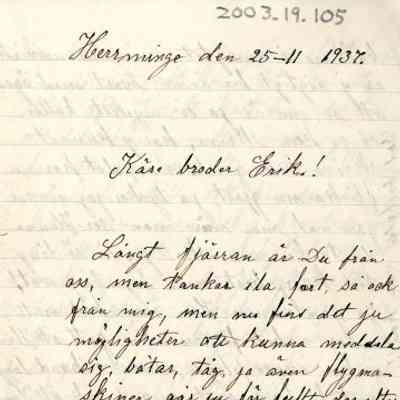 2003.19.105
Herrminge den 25-11 1937.
Käre broder Erik!
Långt fjärran är Du från
oss, men tankar ila fort, so ock
från mig, men nu fins det ju
möjligheter att kunna meddela
sig, båtar, tåg, ja även flygma-
skiner går ju för fullt